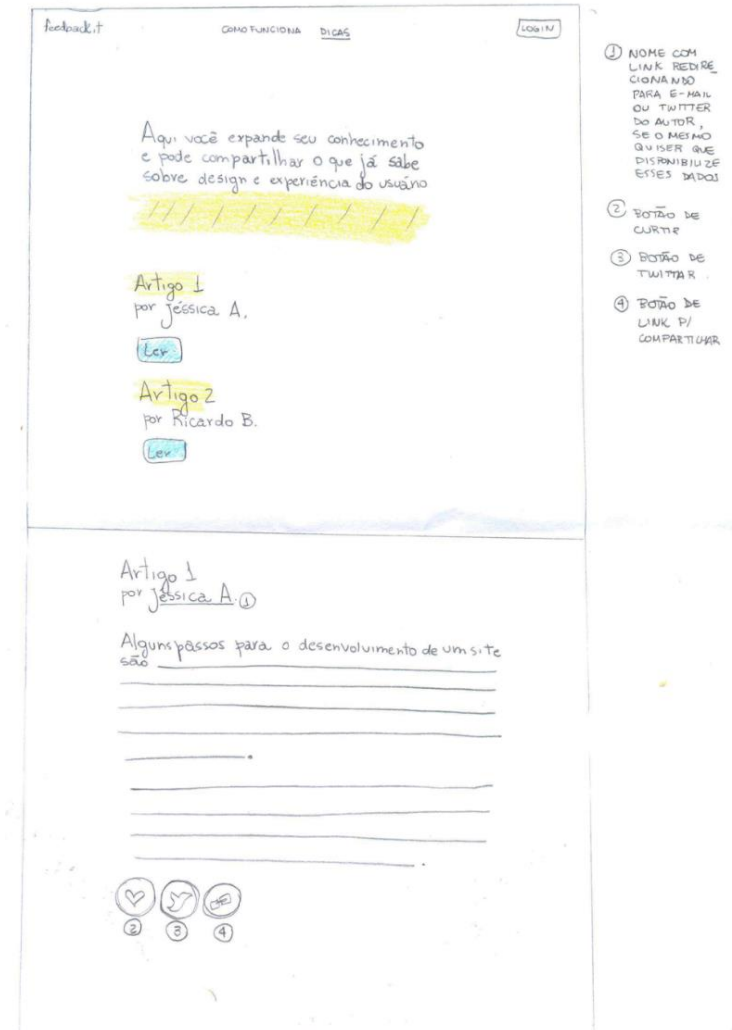 feedback.it
COMO FUNCIONA DICAS
LOGIN
Aqui você expande seu conhecimento
e pode compartilhar o que já sabe
sobre design e experiência do usuário
Artigo 1
por Jéssica A.
Ler
Artigo 2
por Ricardo B.
Ler
Artigo 1
por Jéssica A. 1
Alguns passos para o desenvolvimento de um site
são
2 3 4
1 NOME COM
LINK REDIRE_
CIONANDO
PARA E-MAIL
OU TWITTER
DO AUTOR,
SE O MESMO
QUISER QUE
DISPONIBILIZE
ESSES DADOS
2 BOTÃO DE
CURTIR
3 BOTÃO DE
TWITTAR
4 BOTÃO DE
LINK P/
COMPARTILHAR